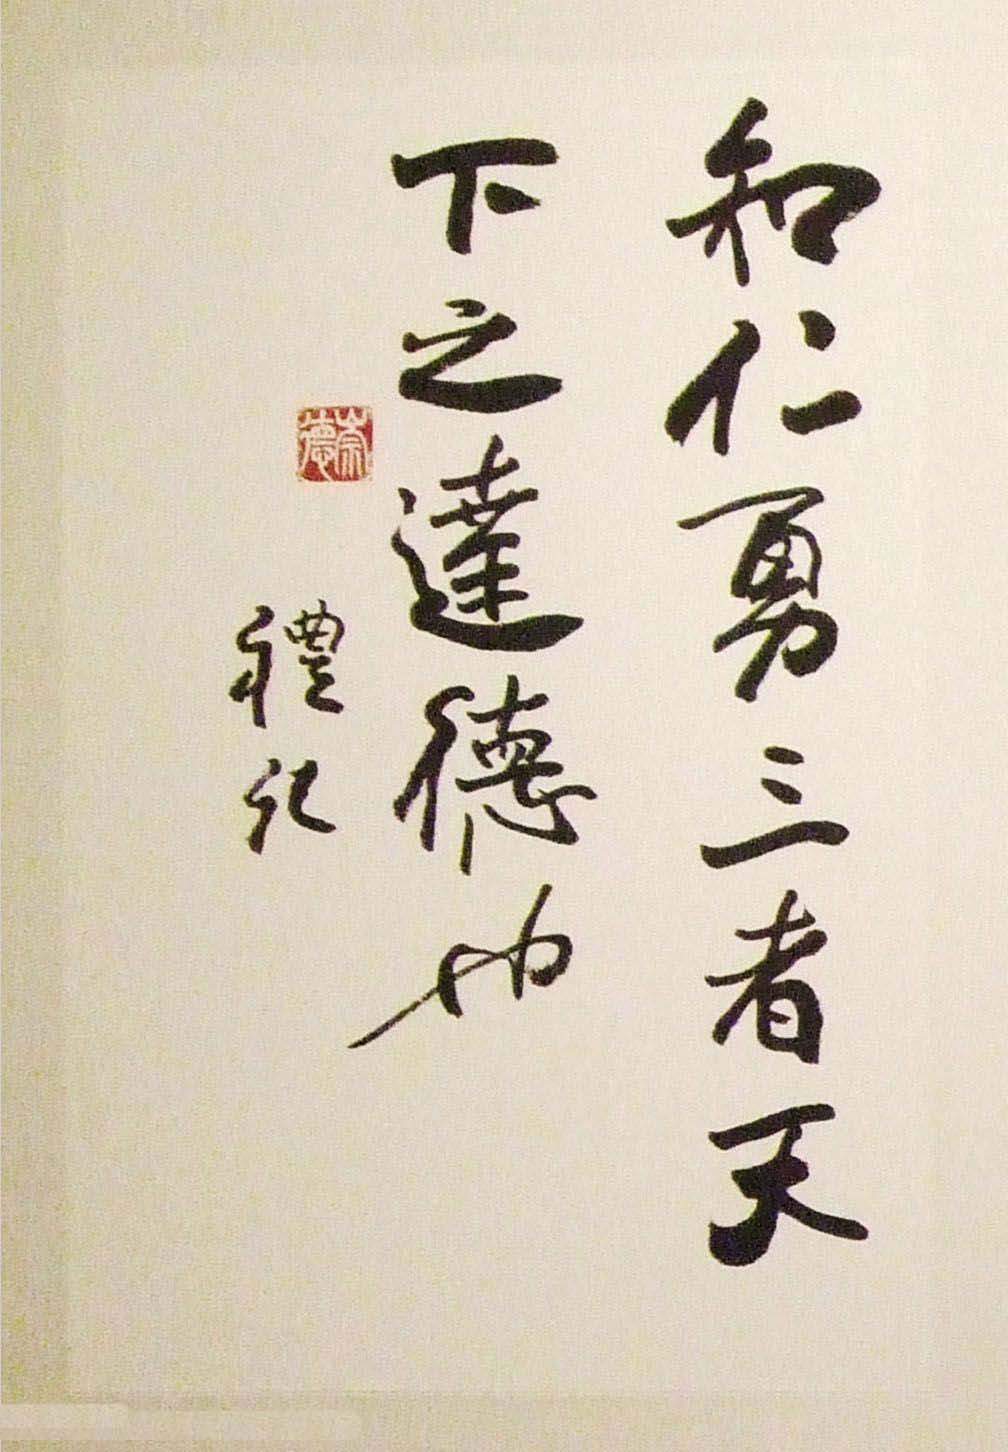 知仁勇三者天
下之達德也
禮记
崇德